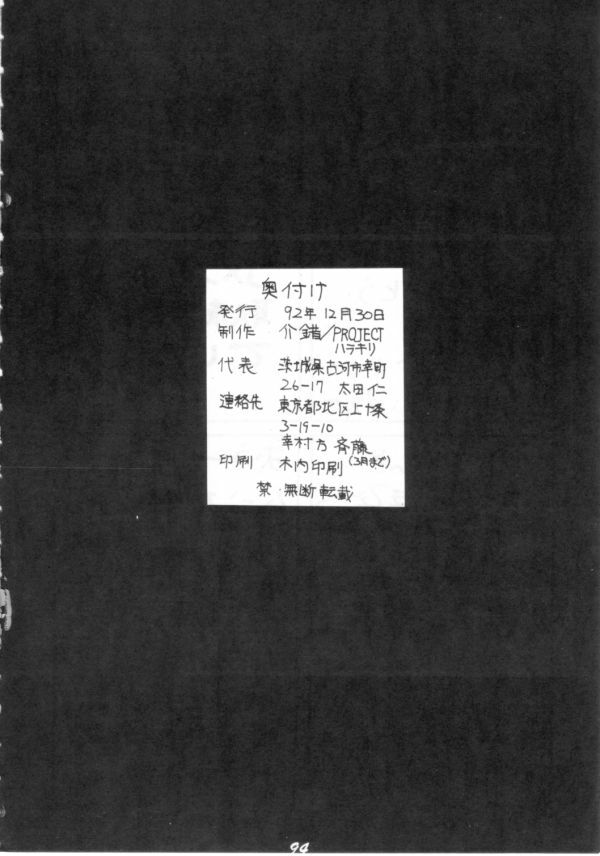 奥付け
発行 92年12月30日
制作 介錯/PROJECT
ハラキリ
代表 茨城県古河市幸町
26-17 太田仁
連絡先 東京都北区上十条
3-19-10
幸村方 斉藤
(3月まで)
印刷 木内印刷
禁・無断転載
94